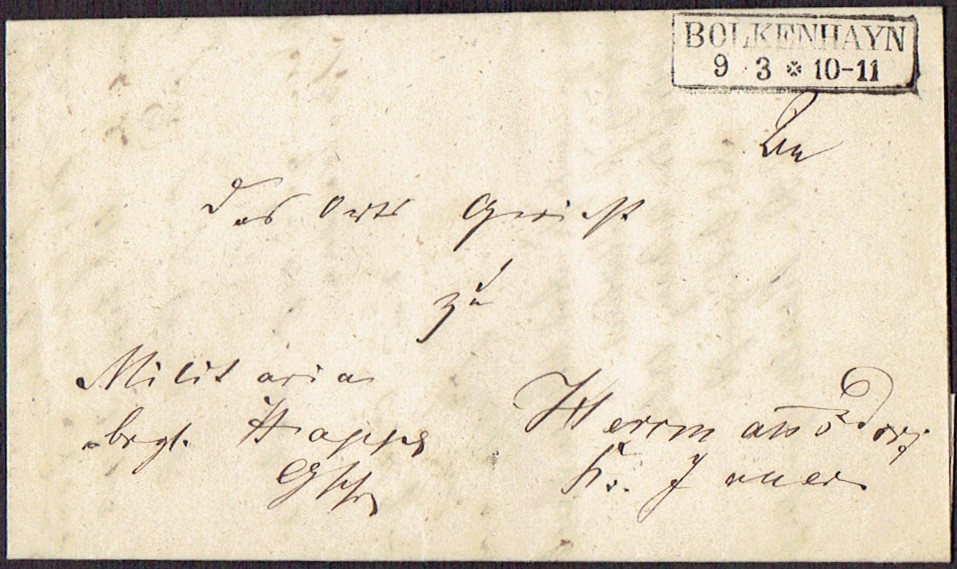 BOLKENHAYN
9 3 * 10-11
An
das Orts Gericht
zu
Militaria
Hermannsdorf
Kr. Jauer